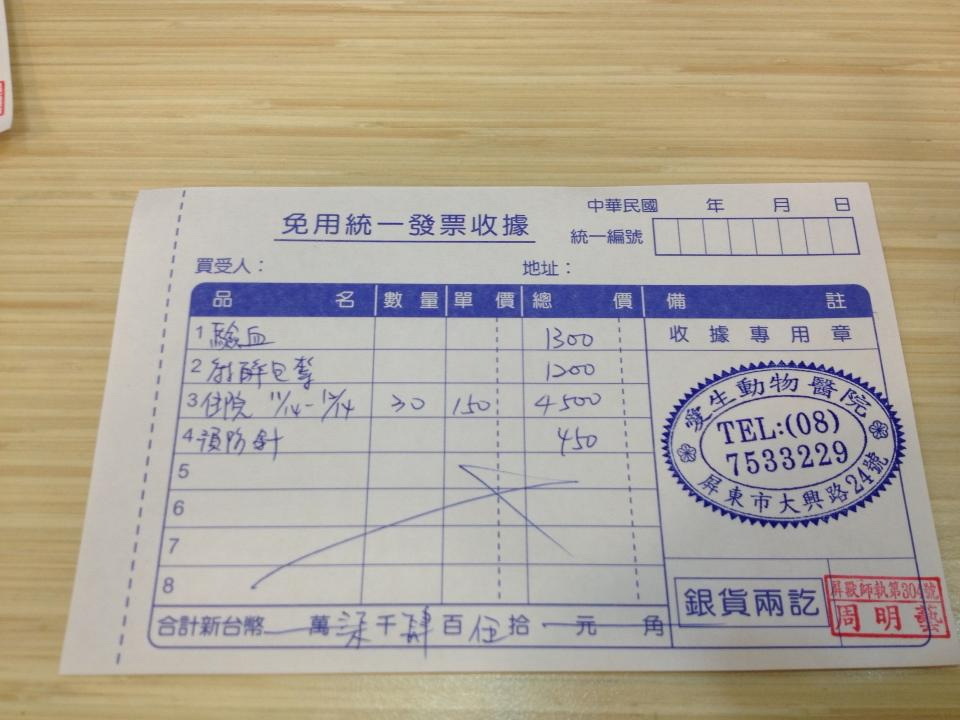 中華民國 年 月 日
免用統一發票收據
統一編號
買受人：
地址：
品名 數量 單價 總價 備註
1 驗血 1300
收據專用章
2 麻醉包紮 1200
3 住院 11/14-12/14 30 150 4500
4 預防針 450
愛生動物醫院
TEL:(08)
7533229
屏東市大興路24號
5
6
7
8
合計新台幣 萬 柒 千 肆 百 伍 拾 元 角
銀貨兩訖
屏獸師執第304號
周明藝